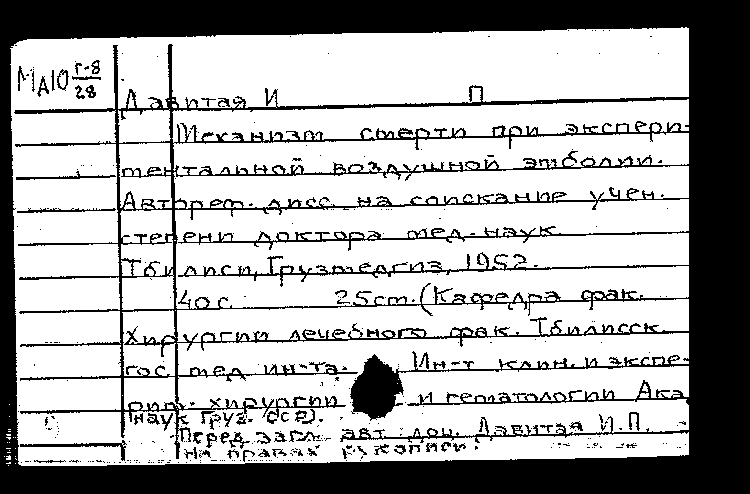 МА10 Г-8/28
Давитая, И П
Механизм смерти при экспери-
ментальной воздушной эмболии.
Автореф. дисс. на соискание учен.
степени доктора мед. наук.
Тбилиси, Грузмедгиз, 1952.
40 с. 25 cm. (Кафедра фак.
хирургии лечебного фак. Тбилисск.
гос мед ин-та. Ин-т клин. и экспе-
рим. хирургии и гематологии Акад
наук Груз. ССР).
Перед загл. авт. доц. Давитая И.П.
На правах рукописи.